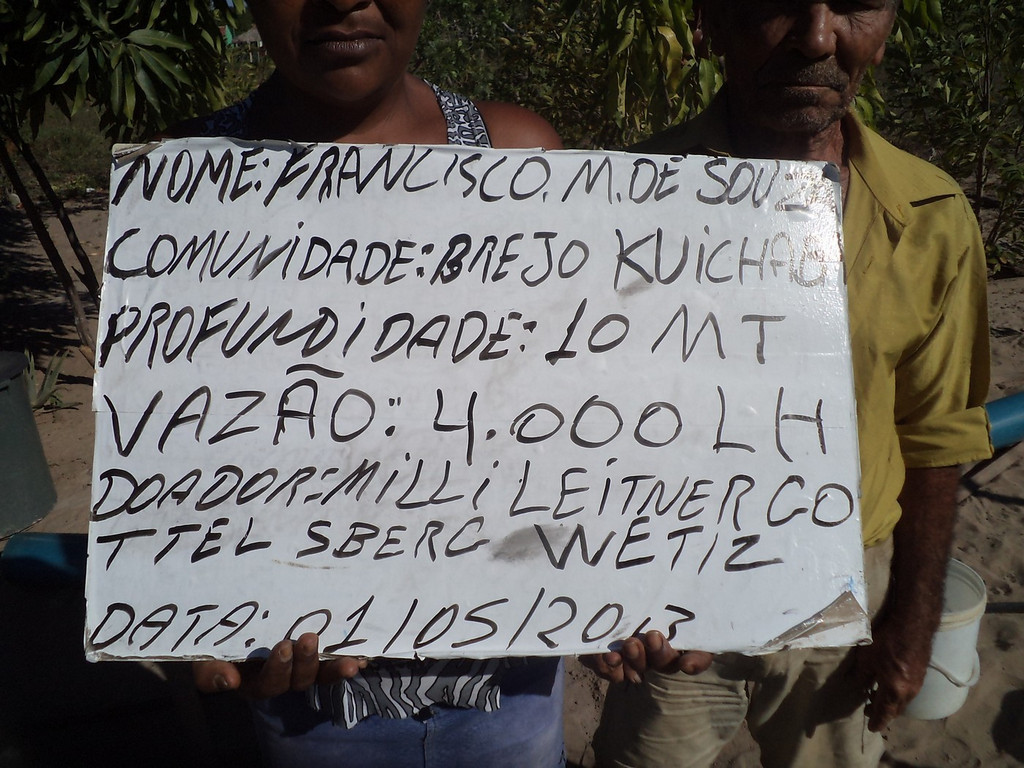 NOME: FRANCISCO. M. DE SOUZA
COMUNIDADE: BREJO
PROFUNDIDADE: 10 MT
VAZÃO: 4.000 LH
DOADOR: MILLI LEITNER GO
TTEL SBERG WETIZ
DATA: 01/05/2013